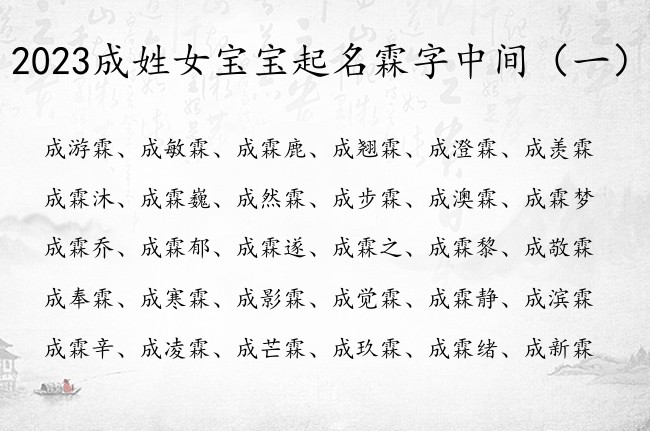 2023成姓女宝宝起名霖字中间（一）
成游霖、成敏霖、成霖鹿、成翘霖、成澄霖、成羡霖
成霖沐、成霖巍、成然霖、成步霖、成澳霖、成霖梦
成霖乔、成霖郁、成霖遂、成霖之、成霖黎、成敬霖
成奉霖、成寒霖、成影霖、成觉霖、成霖静、成滨霖
成霖辛、成凌霖、成芒霖、成玖霖、成霖绪、成新霖